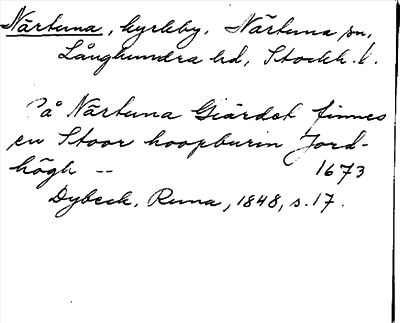 Närtuna, kyrkby. Närtuna sn,
Långhundra hd, Stockh. l.
På Närtuna Giärdet finnes
en Stoor hoopburin Jord-
högh -- 1673
Dybeck, Runa, 1848, s. 17.